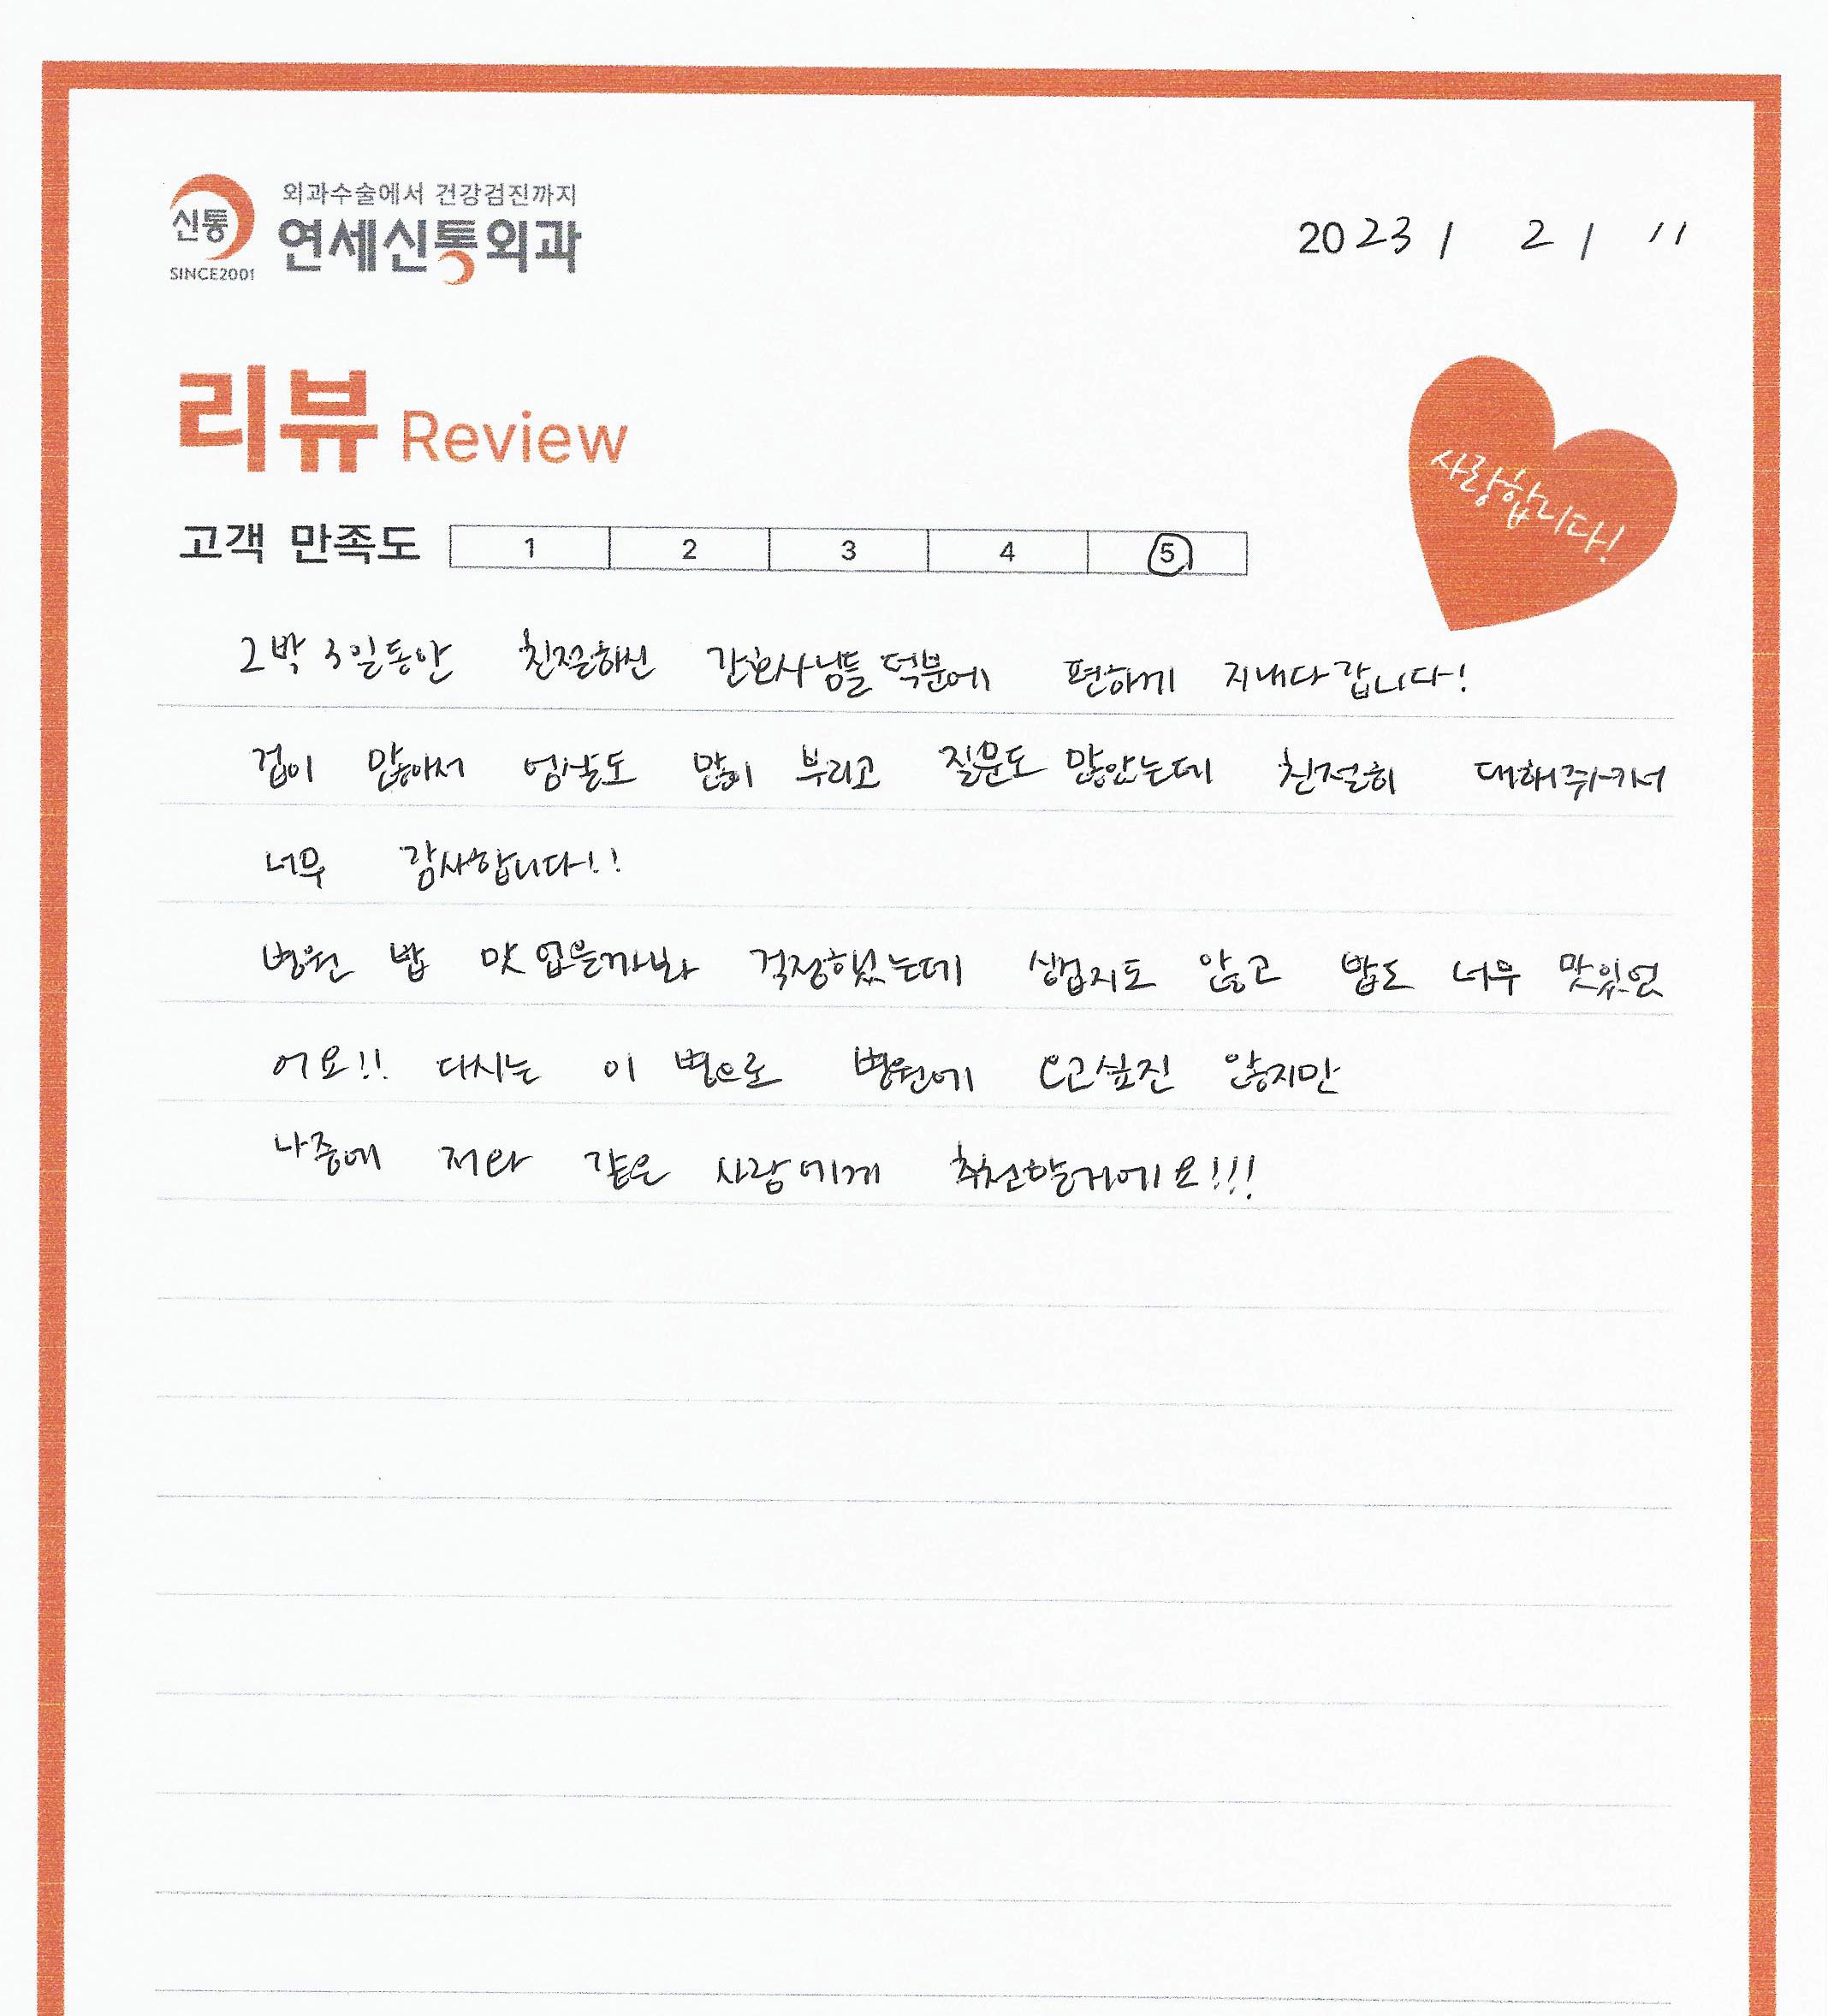 외과수술에서 건강검진까지
신통
연세신통외과
SINCE2001
2023 / 2 / 11
리뷰 Review
사랑합니다!
고객 만족도 1 2 3 4 5
2박 3일동안 친절하신 간호사님들 덕분에 편하게 지내다 갑니다!
겁이 많아서 엄살도 많이 부리고 질문도 많았는데 친절히 대해주셔서
너무 감사합니다!!
병원 밥 맛 없을까봐 걱정했는데 싱겁지도 않고 밥도 너무 맛있었
어요!! 다시는 이 병으로 병원에 오고싶진 않지만
나중에 저와 같은 사람에게 추천할거에요!!!